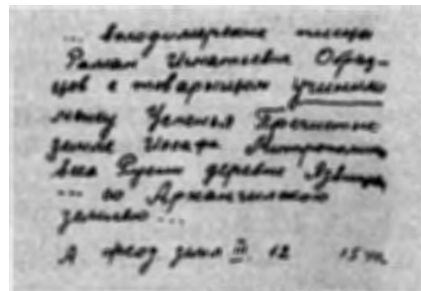 ... володимерские писцы
Роман Игнатьевич Образ-
цов с товарищем учинили
межу Успенья Пречистые
земле Иосифа Митрополита
всеа Русии деревне Язвища
... со Архангильской
землею ...
А феод земл II. 12 15